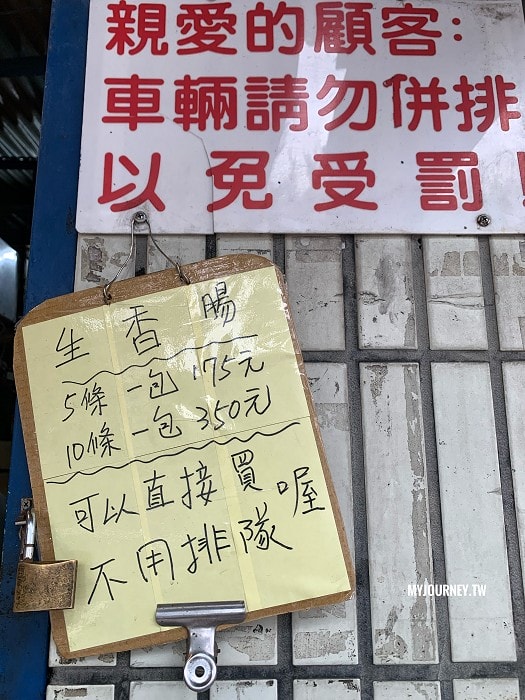 親愛的顧客:
車輛請勿併排
以免受罰!
生香腸
5條一包175元
10條一包350元
可以直接買喔
不用排隊
MYJOURNEY.TW